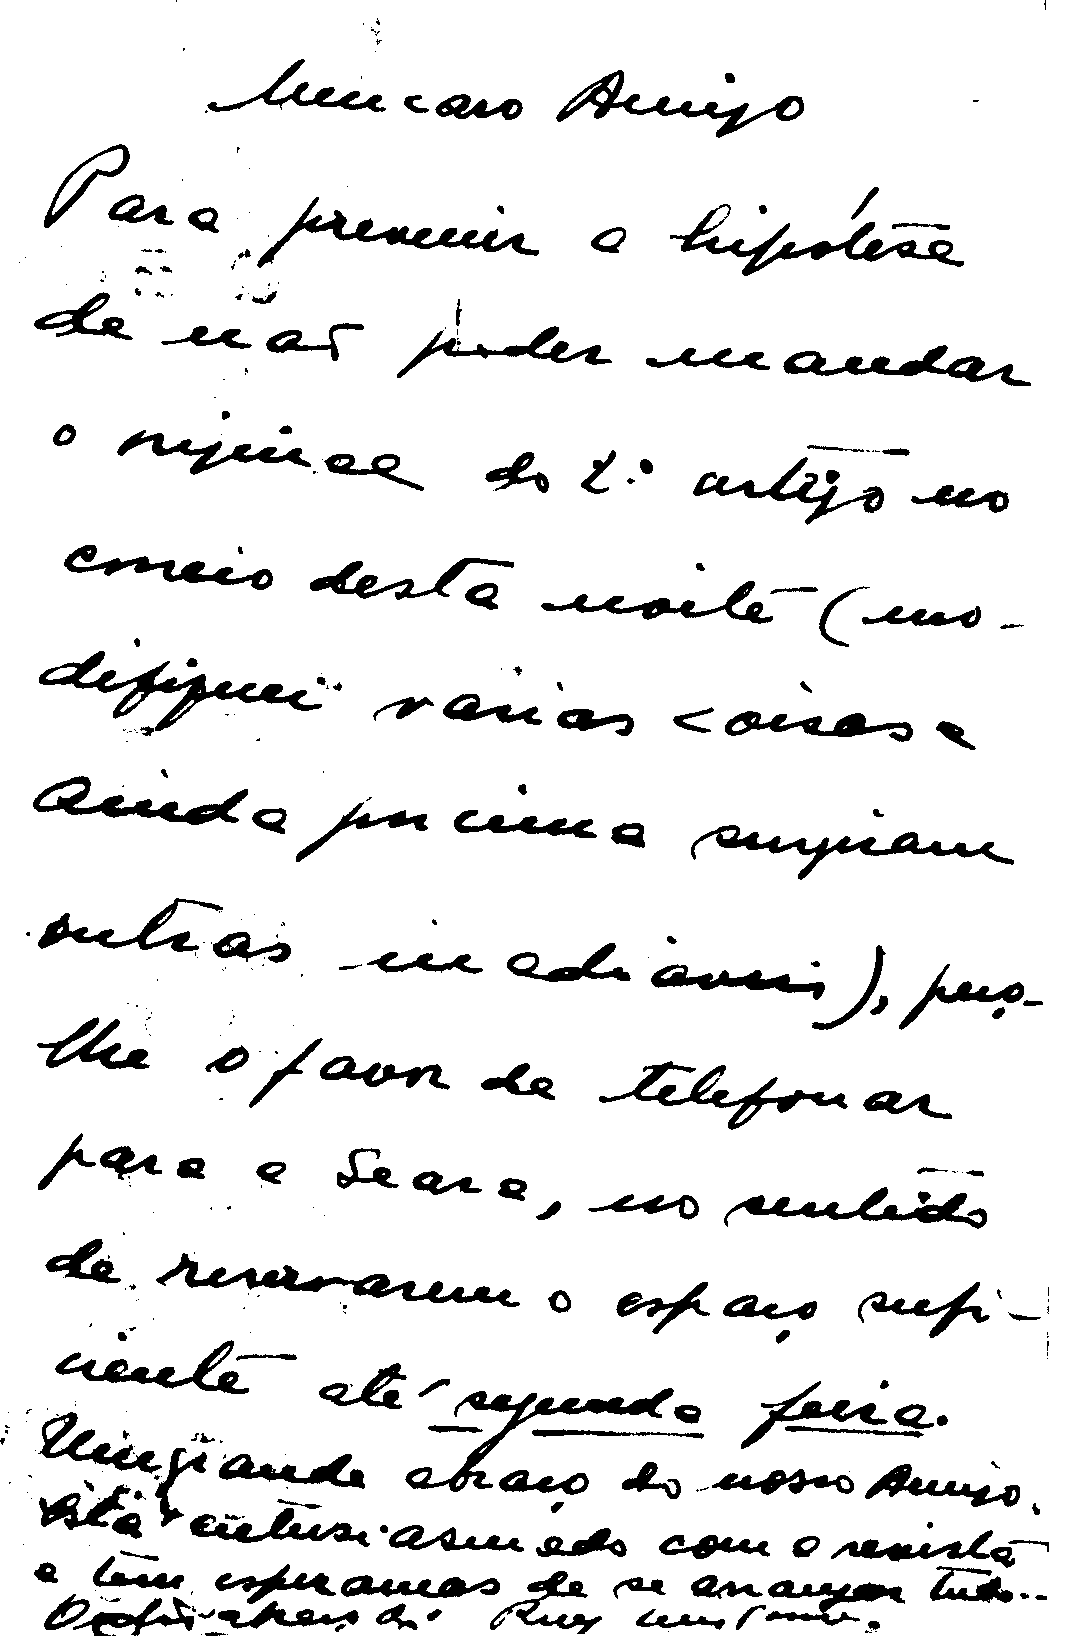 Meu caro Amigo
Para prevenir a hipótese
de não poder mandar
o original do 2.º artigo no
correio desta noite (mo-
difiquei várias coisas e
ainda por cima surgiram
outras inadiáveis), peço-
lhe o favor de telefonar
para a Seara, no sentido
de reservarem o espaço sufi-
ciente até segunda feira.
Um grande abraço do nosso Amigo.
Está entusiasmado com a revista
e tem esperanças de se arranjar tudo...
Ruy